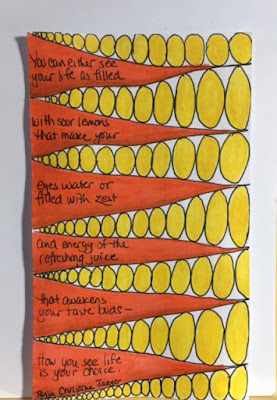 You can either see
your life as filled
with sour lemons
that make your
eyes water or
filled with zest
and energy of the
refreshing juice
that awakens
your taste buds—
How you see life
is your choice.
Christine Jaeger